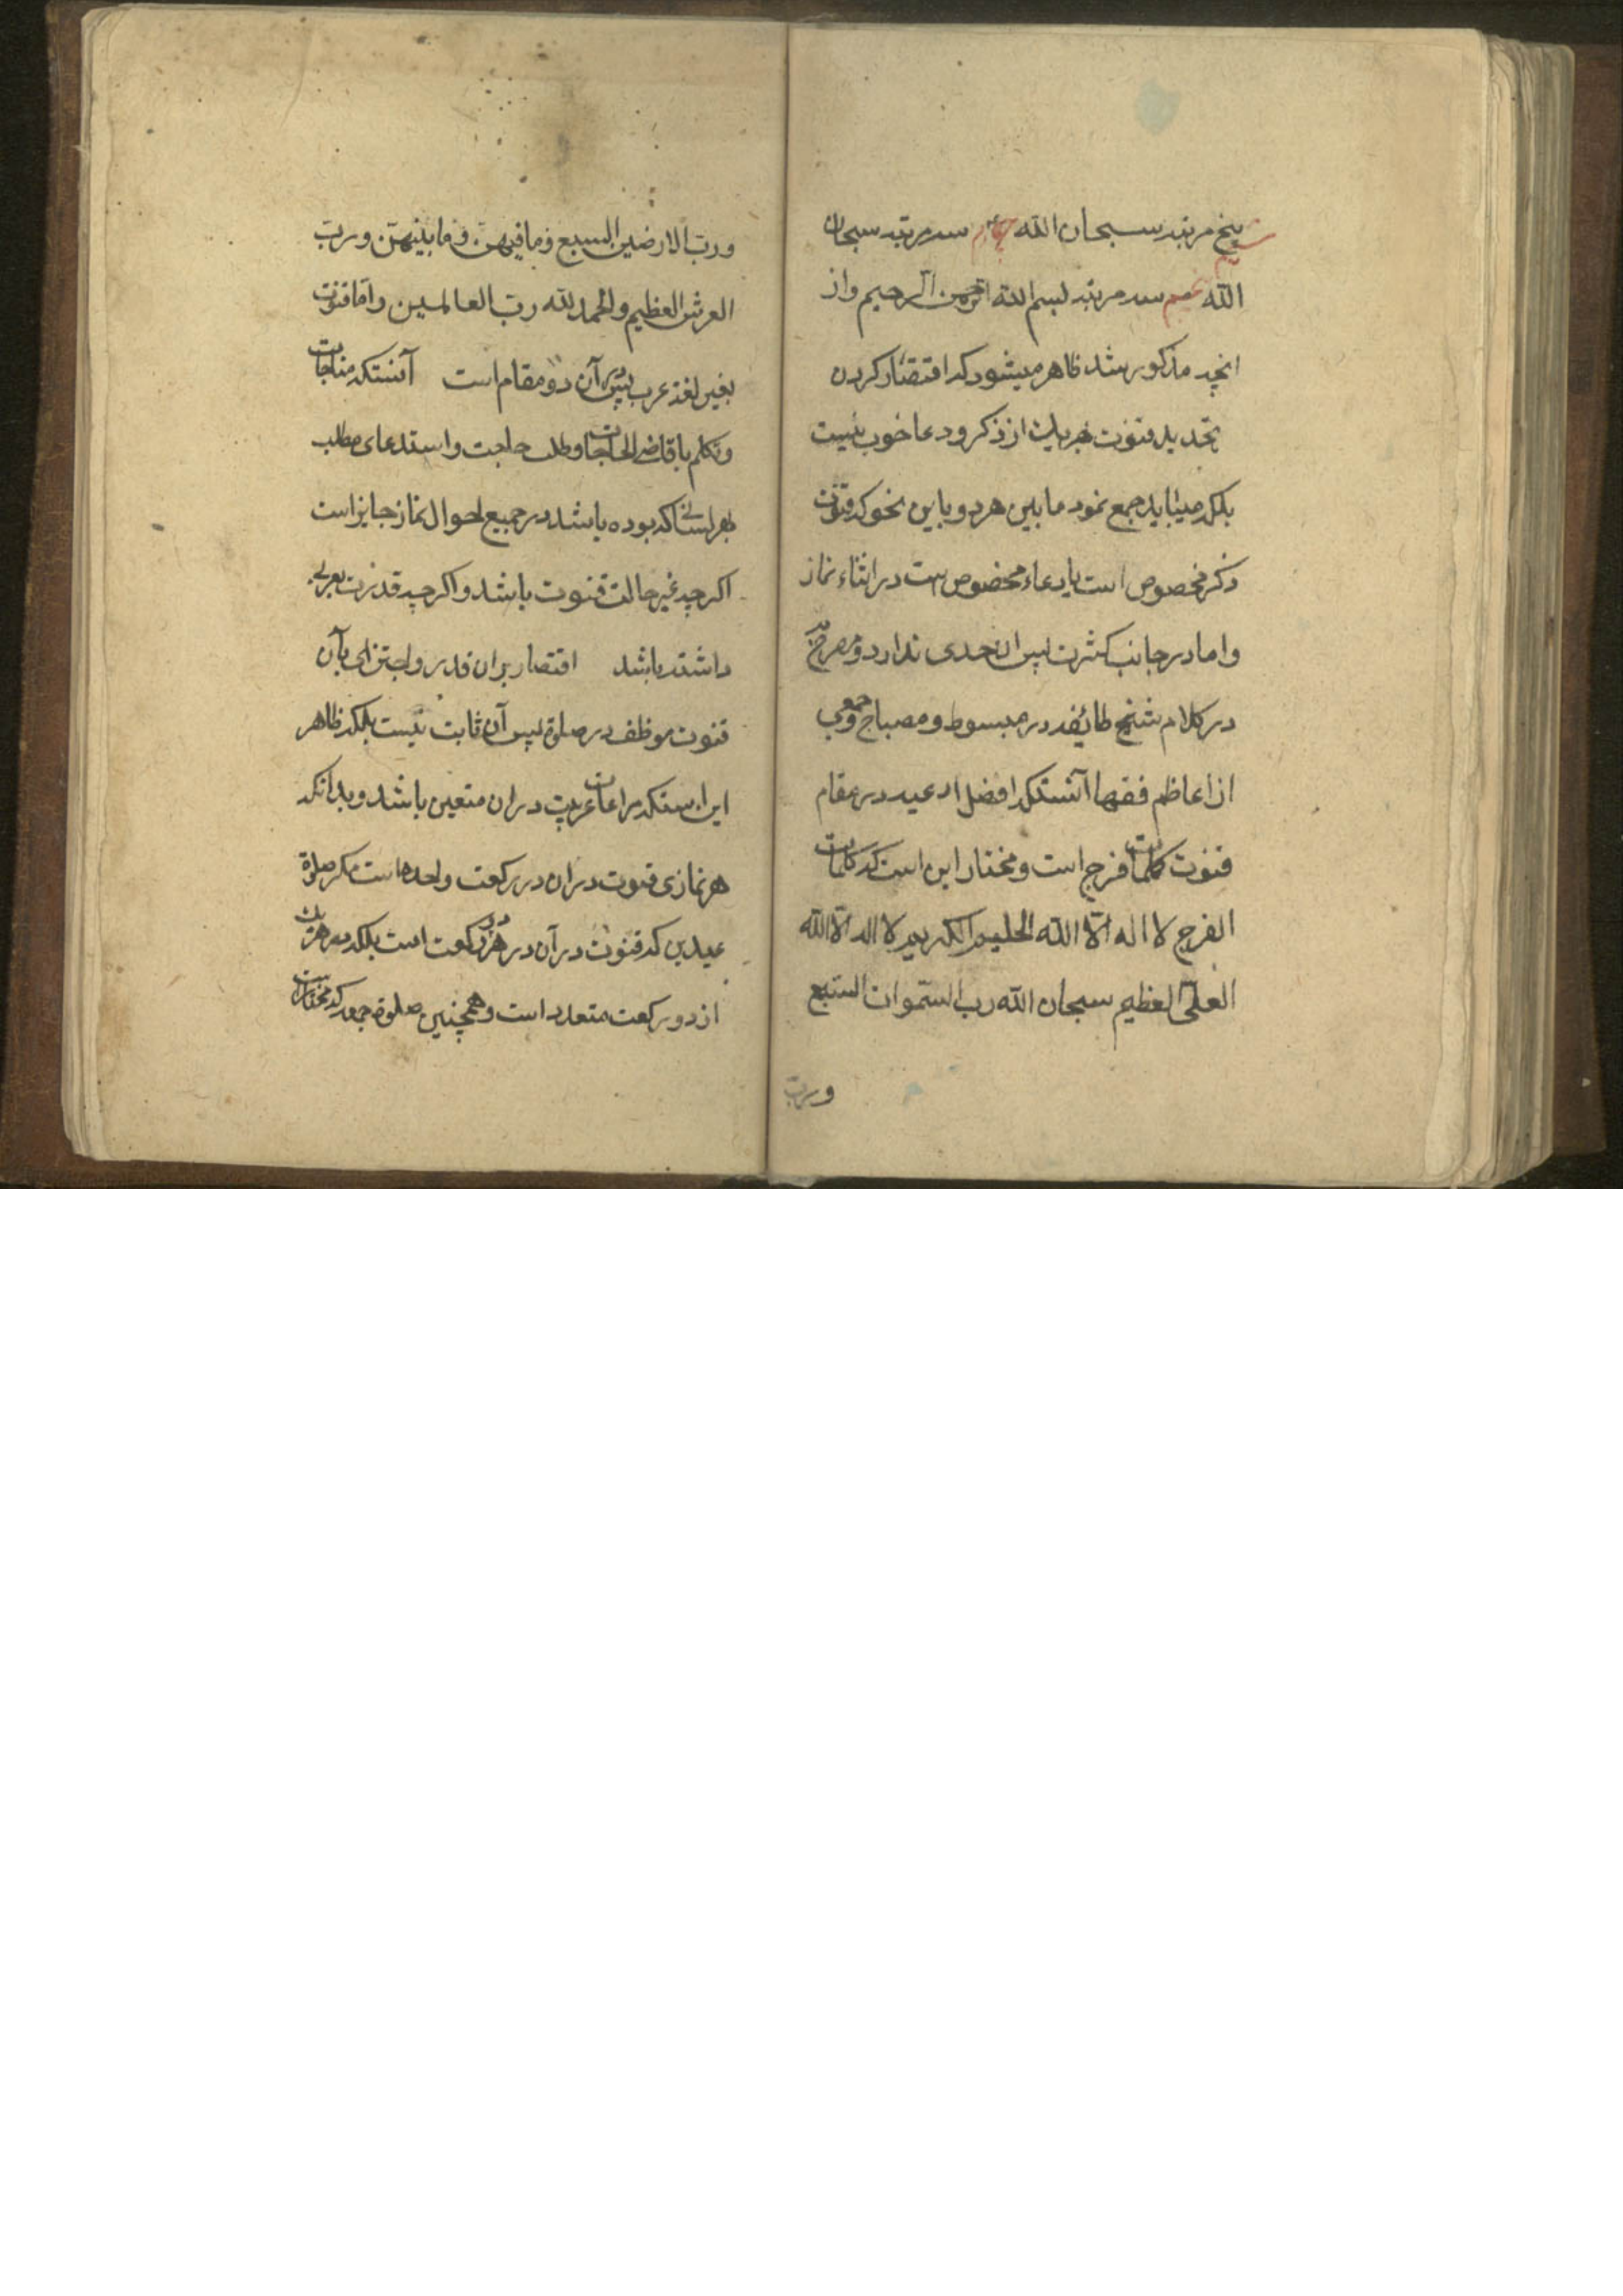 پنج مرتبه سبحان الله چهارم سه مرتبه سبحان
الله پنجم سه مرتبه بسم الله الرحمن الرحیم واز
انچه مذکور شد ظاهر میشود که اقتصار کردن
بتحدید قنوت بهر یک از ذکر ودعا خوب نیست
بلکه میباید جمع نمود مابین هر دو باین نحو که قنوت
ذکر مخصوص است یا دعاء مخصوص است در اثناء نماز
واما در جانب کثرت پس آن حدی ندارد ومصرح به
در کلام شیخ طائفه در مبسوط ومصباح وجمعی
از اعاظم فقها آنستکه افضل ادعیه در مقام
قنوت کلمات فرج است ومختار این است که کلمات
الفرج لا اله الّا الله الحلیم الکریم لا اله الّا الله
العلیّ العظیم سبحان الله ربّ السّموات السّبع
وربّ
وربّ الارضین السبع وما فیهنّ وما بینهنّ وربّ
العرش العظیم والحمد لله ربّ العالمین وامّا قنوت
بغیر لغة عرب پس در آن دو مقام است آنستکه مناجات
وتکلم با قاضی الحاجات وطلب حاجت واستدعای مطلب
بهر لسانی که بوده باشد در جمیع احوال نماز جایز است
اکرچه غیر حالت قنوت باشد واکرچه قدرت بعربی
داشته باشد اقتصار بران قدر واجتزای بآن
قنوت موظف در صلوة پس آن ثابت نیست بلکه ظاهر
این استکه مراعات عربیت دران متعین باشد وبدانکه
هر نمازی قنوت دران در رکعت واحده است مکر صلوة
عیدین که قنوت در آن در هر دو رکعت است بلکه در هر یک
از دو رکعت متعدد است وهمچنین صلوة جمعه که مختار است